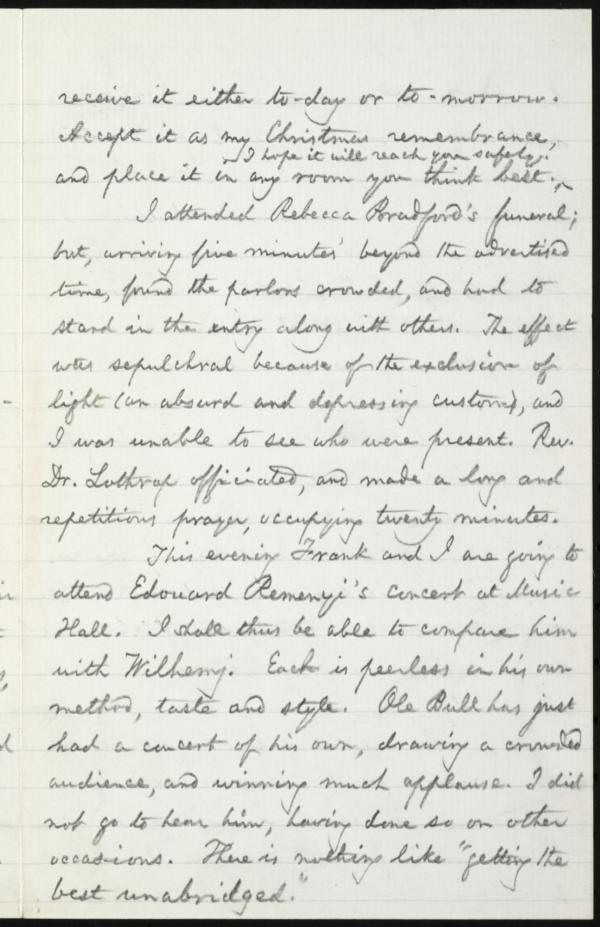 receive it either to-day or to-morrow.
Accept it as my Christmas remembrance,
I hope it will reach you safely.
and place it in any room you think best.
I attended Rebecca Bradford's funeral;
but, arriving five minutes' beyond the advertised
time, found the parlors crowded, and had to
stand in the entry along with others. The effect
was sepulchral because of the exclusion of
light (an absurd and depressing custom), and
I was unable to see who were present. Rev.
Dr. Lothrop officiated, and made a long and
repetitious prayer, occupying twenty minutes.
This evening Frank and I are going to
attend Edouard Remenyi's concert at Music
Hall. I shall thus be able to compare him
with Wilhemj. Each is peerless in his own
method, taste and style. Ole Bull has just
had a concert of his own, drawing a crowded
audience, and winning much applause. I did
not go to hear him, having done so on other
occasions. There is nothing like "getting the
best unabridged."